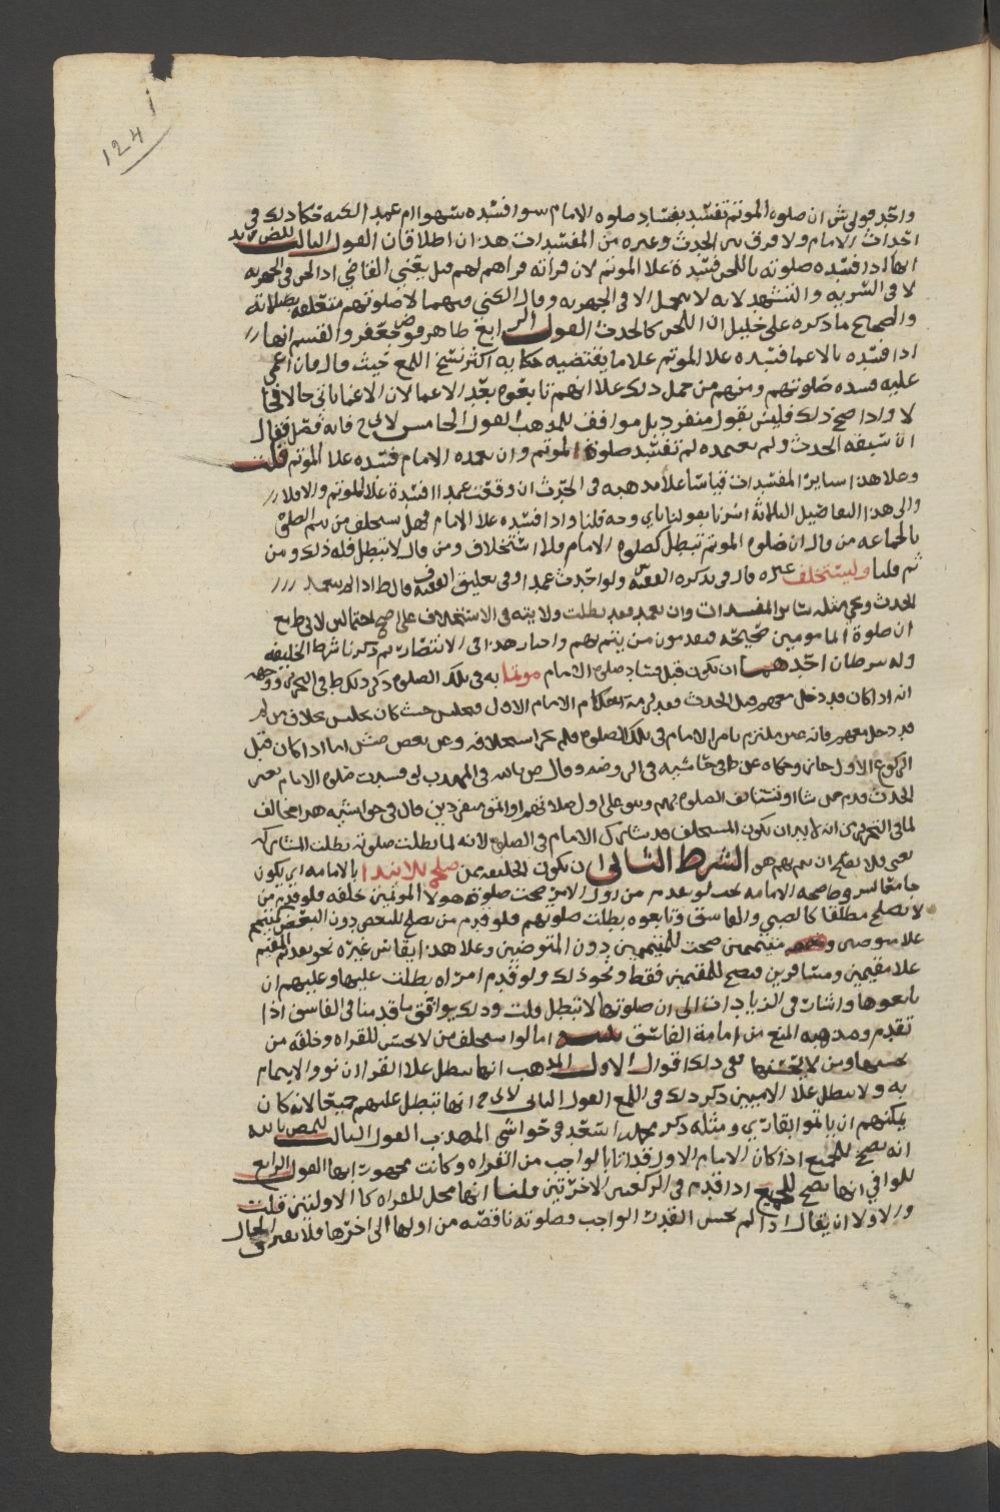 124
واحد قولي ش ان صلوه الموتم تفسد بفساد صلوه الامام سوا فسده سهوا ام عمدا
احداث الامام ولا فرق بين الحدث وغيره من المفسدات هذان اطلاقان القول الثالث للمص بالله
انها اذا فسده صلوته باللحن فسدة علا الموتم لان قرأته قراه لهم قيل يعني القاضي اذا لحن في الجهريه
لا في السريه والتشهد لانه لا يتحمل الا في الجهريه وقال الكني فيهما لان صلوتهم متعلقه بصلاته
والصحيح ما ذكره علي خليل ان اللحن كالحدث القول الرابع ظاهر قول ض جعفر والقسم انها
اذا فسده بالاغما فسده علا الموتم علا ما يقتضيه حكايه اكثر نسخ اللمع حيث قال فان اغمي
عليه فسده صلوتهم ومنهم من حمل ذلك علا انهم تابعوه بعد الاغما لان الاغما ياتي حالا فحا
لا واذا صح ذلك فليس بقول منفرد بل موافق للمذهب القول الخامس فانه فصل فقال
ان سبقه الحدث ولم يعتمده لم تفسد صلوة الموتم وان تعمده الامام فسده علا الموتم قلت
وعلا هذا ساير المفسدات قياسا علا مذهبه في الحدث ان وقعت عمدا فسدة علا الموتم والا فلا
والى هذا التفاصيل الثلاثة اشرنا بقولنا باي وجه قلنا واذا فسده علا الامام فهل يستخلف من يتم الصلوه
بالجماعه من قال ان صلوه الموتم تبطل كصلوه الامام فلا استخلاف ومن قال لا تبطل فله ذلك ومن
ثم قلنا وليستخلف غيره قال في تذكره الفقيه س ولو احدث عمدا وفي تعليق الفقيه ف قال ط اذا لم يتعمد
الحدث ونحي مثله ساير المفسدات وان تعمد فقد بطلت ولا يته في الاستخلاف على اصح احتمالين لابي ط مع
ان صلوة المامومين صحيحه فيقدمون من يتم بهم واختار هذا في الانتصار ثم ذكرنا شرط الخليفه
وله شرطان احدهما ان يكون قبل فساد صلوه الامام موتما به في تلك الصلوه ذكر ذلك ط في التحرير ووجهه
انه اذا كان قد دخل معهم قبل الحدث فقد لزمه احكام الامام الاول فيجلس حيث كان يجلس بخلاف من لم
قد دخل معهم فانه غير ملتزم بامر الامام في تلك الصلوه فلم يجز استخلافه وعن بعض صش انها اذا كان قبل
الركوع الاول جاز وحكاه عن ط في حاشيه في الروضه وقال ص بالله في المهذب لو فسدت صلوه الامام بغير
الحدث قدم من شا او تستانف الصلوه بهم ويبني على اول صلاتهم او اتموا منفردين قال في حواشيه هذا مخالف
لما في التحرير من انه لا بد ان يكون المستخلف قد شارك الامام في الصلوه لانه لما بطلت صلوته بطلت المشاركه
يعني فلا يصح ان يتم بهم هو الشرط الثاني ان يكون الخليفه ممن صلح للابتدا بالامامه اي يكون
جامعا لشروط صحه الامامه بحيث لو تقدم من اول الامر صحت صلوة هولا الموتمين خلفه فلو قدم من
لا يصلح مطلقا كالصبي والفاسق وتابعوه بطلت صلوتهم فلو قدم من يصلح للبعض دون البعض كمتيمم
علا متوضين ومتيممين صحت للمتيممين دون المتوضين وعلا هذا يقاس غيره نحو تقدم المقيم
علا مقيمين ومسافرين فتصح للمقيمين فقط ونحو ذلك ولو قدم امراه بطلت عليها وعليهم ان
تابعوها واشار في الزيادات الى ان صلوتها لا تبطل قلت وذلك يوافق ما قدمنا في الفاسق اذا
تقدم ومذهبه المنع من امامة الفاسق اما لو استخلف من لا يحسن القراه وخلفه من
يحسنها ومن لا يحسنها ففي ذلك اقوال الاول المذهب انها تبطل علا القرا ان نووا الايتمام
به ولا تبطل علا الاميين ذكر ذلك في اللمع القول الثاني انها تبطل عليهم جميعا لانه كان
يمكنهم ان ياتموا بقاري ومثله ذكر محمد بن اسعد في حواشي المهذب القول الثالث للمص بالله
انه تصح للجميع اذا كان الامام الاول قد اتا بالواجب من القراه وكانت مجهورا بها القول الرابع
للوافي انها تصح للجميع اذا قدم في الركعتين الاخرتين قلنا انها محل للقراه كالاولتين قلت
والاولا ان يقال اذا لم يحسن القدر الواجب فصلوته ناقصه من اولها الى اخرها فلا يفترق الحال